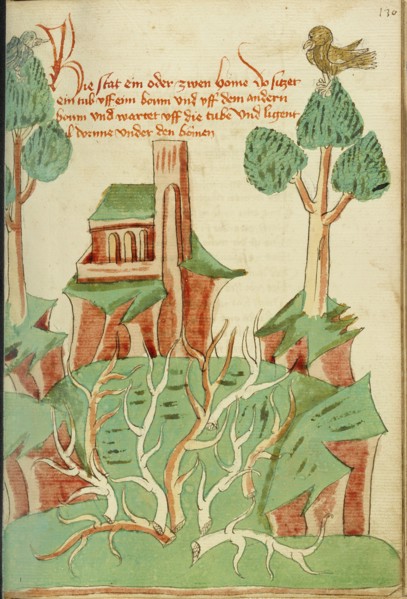 136
Hie stat ein oder zwen böme do sitzer
ein tub vff eim boum vnd vff dem andern
boum vnd wartet vff die tube vnd ligent
vil vnder den bömen